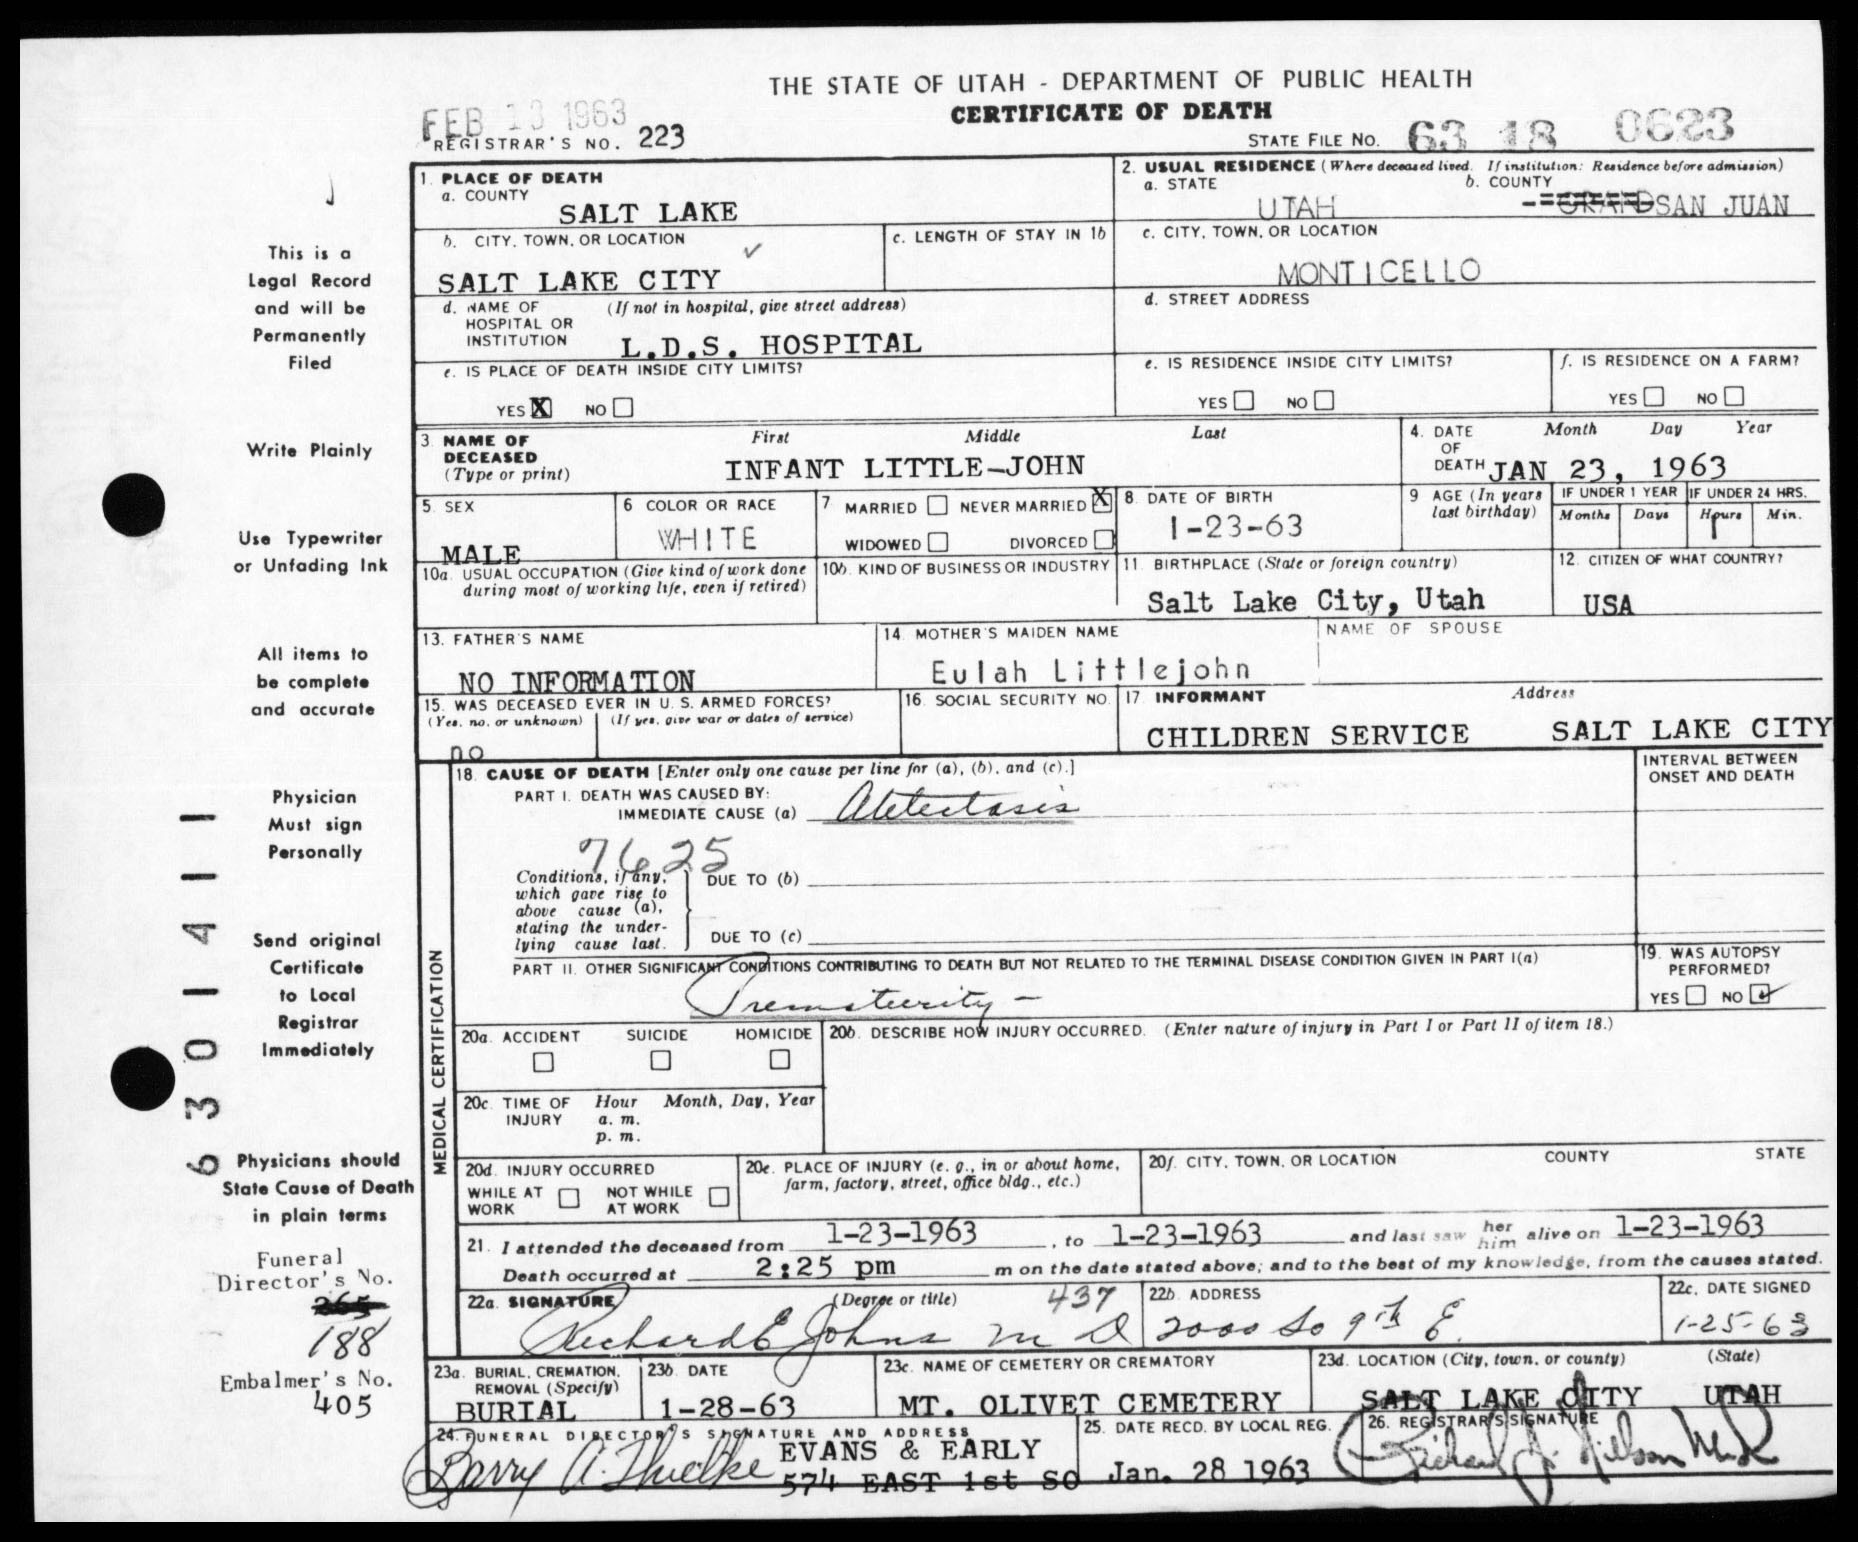 THE STATE OF UTAH - DEPARTMENT OF PUBLIC HEALTH
CERTIFICATE OF DEATH
FEB 13 1963
REGISTRAR'S NO. 223
STATE FILE NO. 63 18 0623
This is a
Legal Record
and will be
Permanently
Filed
Write Plainly
Use Typewriter
or Unfading Ink
All items to
be complete
and accurate
Physician
Must sign
Personally
Send original
Certificate
to Local
Registrar
Immediately
Physicians should
State Cause of Death
in plain terms
Funeral
Director's No.
265
188
Embalmer's No.
405
6301411
1. PLACE OF DEATH
a. COUNTY
SALT LAKE
2. USUAL RESIDENCE (Where deceased lived. If institution: Residence before admission)
a. STATE
UTAH
b. COUNTY
GRAND SAN JUAN
b. CITY, TOWN, OR LOCATION
SALT LAKE CITY
c. LENGTH OF STAY IN 1b
c. CITY, TOWN, OR LOCATION
MONTICELLO
d. NAME OF HOSPITAL OR INSTITUTION
(If not in hospital, give street address)
L.D.S. HOSPITAL
d. STREET ADDRESS
e. IS PLACE OF DEATH INSIDE CITY LIMITS?
YES X NO
e. IS RESIDENCE INSIDE CITY LIMITS?
YES NO
f. IS RESIDENCE ON A FARM?
YES NO
3. NAME OF DECEASED
(Type or print)
First Middle Last
INFANT LITTLE-JOHN
4. DATE OF DEATH
Month Day Year
JAN 23, 1963
5. SEX
MALE
6 COLOR OR RACE
WHITE
7. MARRIED NEVER MARRIED X
WIDOWED DIVORCED
8. DATE OF BIRTH
1-23-63
9 AGE (In years last birthday)
IF UNDER 1 YEAR
Months Days
IF UNDER 24 HRS.
Hours Min.
1
10a. USUAL OCCUPATION (Give kind of work done during most of working life, even if retired)
10b. KIND OF BUSINESS OR INDUSTRY
11. BIRTHPLACE (State or foreign country)
Salt Lake City, Utah
12. CITIZEN OF WHAT COUNTRY?
USA
13. FATHER'S NAME
NO INFORMATION
14. MOTHER'S MAIDEN NAME
Eulah Littlejohn
NAME OF SPOUSE
15. WAS DECEASED EVER IN U. S. ARMED FORCES?
(Yes, no, or unknown) (If yes, give war or dates of service)
no
16. SOCIAL SECURITY NO.
17. INFORMANT Address
CHILDREN SERVICE SALT LAKE CITY
MEDICAL CERTIFICATION
18. CAUSE OF DEATH [Enter only one cause per line for (a), (b), and (c).]
INTERVAL BETWEEN
ONSET AND DEATH
PART I. DEATH WAS CAUSED BY:
IMMEDIATE CAUSE (a) Atelectasis
7625
Conditions, if any,
which gave rise to
above cause (a),
stating the under-
lying cause last.
DUE TO (b)
DUE TO (c)
PART II. OTHER SIGNIFICANT CONDITIONS CONTRIBUTING TO DEATH BUT NOT RELATED TO THE TERMINAL DISEASE CONDITION GIVEN IN PART I(a)
Prematurity -
19. WAS AUTOPSY
PERFORMED?
YES NO ✓
20a. ACCIDENT SUICIDE HOMICIDE
20b. DESCRIBE HOW INJURY OCCURRED. (Enter nature of injury in Part I or Part II of item 18.)
20c. TIME OF INJURY
Hour Month, Day, Year
a. m.
p. m.
20d. INJURY OCCURRED
WHILE AT WORK NOT WHILE AT WORK
20e. PLACE OF INJURY (e. g., in or about home,
farm, factory, street, office bldg., etc.)
20f. CITY, TOWN, OR LOCATION COUNTY STATE
21. I attended the deceased from 1-23-1963, to 1-23-1963 and last saw her him alive on 1-23-1963
Death occurred at 2:25 pm m on the date stated above; and to the best of my knowledge, from the causes stated.
22a. SIGNATURE (Degree or title) 437
Richard E Johns M D
22b. ADDRESS
2000 So 9th E.
22c. DATE SIGNED
1-25-63
23a. BURIAL, CREMATION,
REMOVAL (Specify)
BURIAL
23b. DATE
1-28-63
23c. NAME OF CEMETERY OR CREMATORY
MT. OLIVET CEMETERY
23d. LOCATION (City, town, or county) (State)
SALT LAKE CITY UTAH
24. FUNERAL DIRECTOR'S SIGNATURE AND ADDRESS
Barry A. Thuelke
EVANS & EARLY
574 EAST 1st SO
25. DATE RECD. BY LOCAL REG.
Jan. 28 1963
26. REGISTRAR'S SIGNATURE